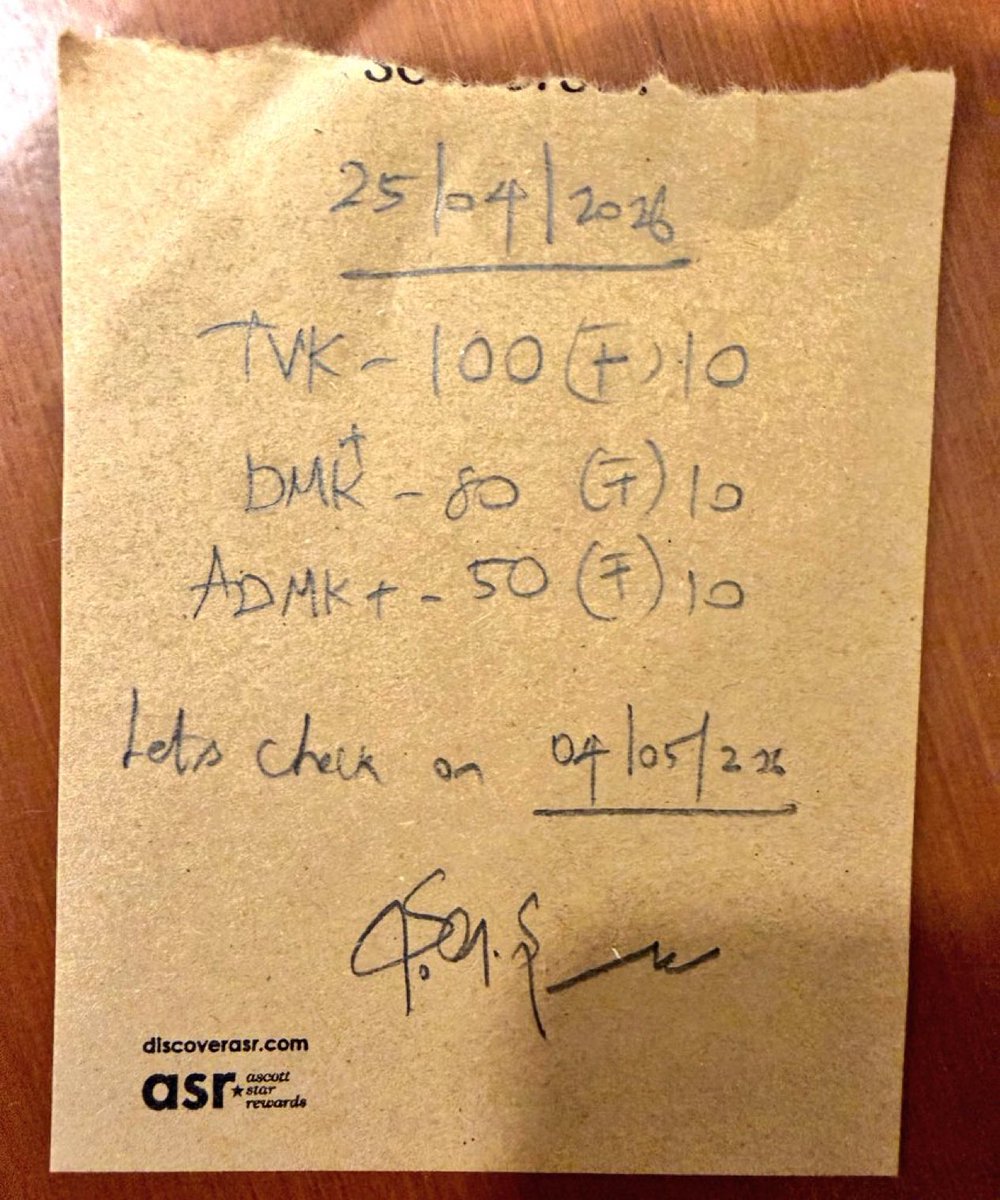 25/04/2026
TVK - 100 (∓) 10
DMK+ - 80 (∓) 10
ADMK + - 50 (∓) 10
Lets check on 04/05/2026
discoverasr.com
asr ascott
star
rewards